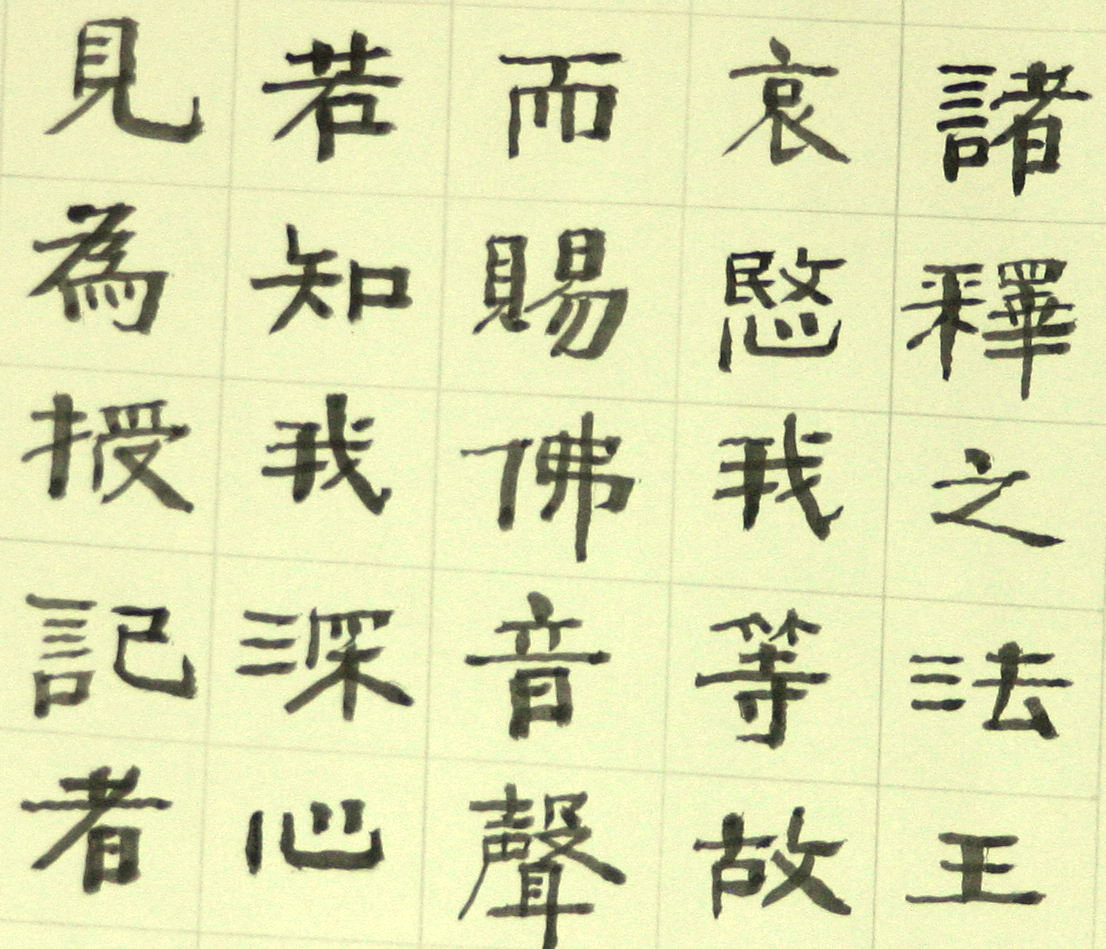 諸釋之法王
哀愍我等故
而賜佛音聲
若知我深心
見為授記者